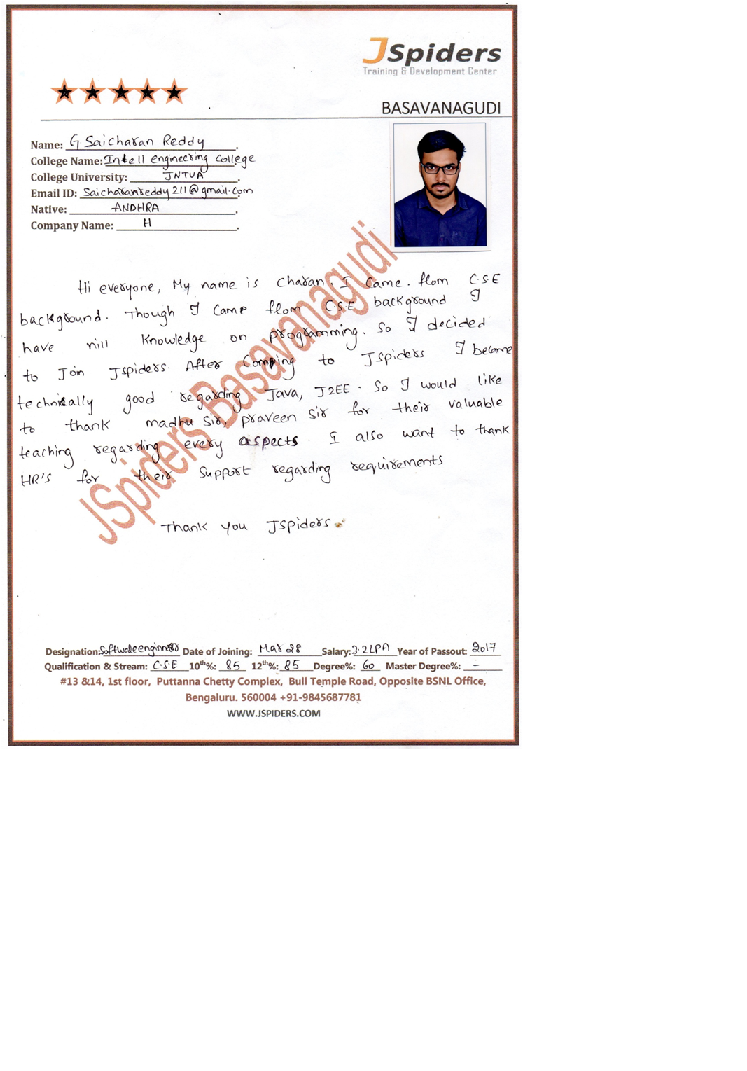 JSpiders
Training & Development Center
BASAVANAGUDI
Name: G Saicharan Reddy
College Name: Intell engineering college
College University: JNTUA
Email ID: Saicharanreddy211@gmail.com
Native: ANDHRA
Company Name: H
Hi everyone, My name is Charan. I Came. from C.S.E
background. Though I Came from C.S.E background I
have nill Knowledge on programming. So I decided
to Join Jspiders After Comping to Jspiders I become
technically good regarding Java, J2EE. So I would like
to thank madhu sir, praveen sir for their valuable
teaching regarding every aspects. I also want to thank
HR'S for their Support regarding requirements
Thank you JSpiders.
JSpiders Basavanagudi
Designation: Software engineer Date of Joining: Mar 28 Salary: 2LPA Year of Passout: 2017
Qualification & Stream: C.S.E 10th%: 85 12th%: 85 Degree%: 60 Master Degree%: -
#13 &14, 1st floor, Puttanna Chetty Complex, Bull Temple Road, Opposite BSNL Office,
Bengaluru. 560004 +91-9845687781
WWW.JSPIDERS.COM